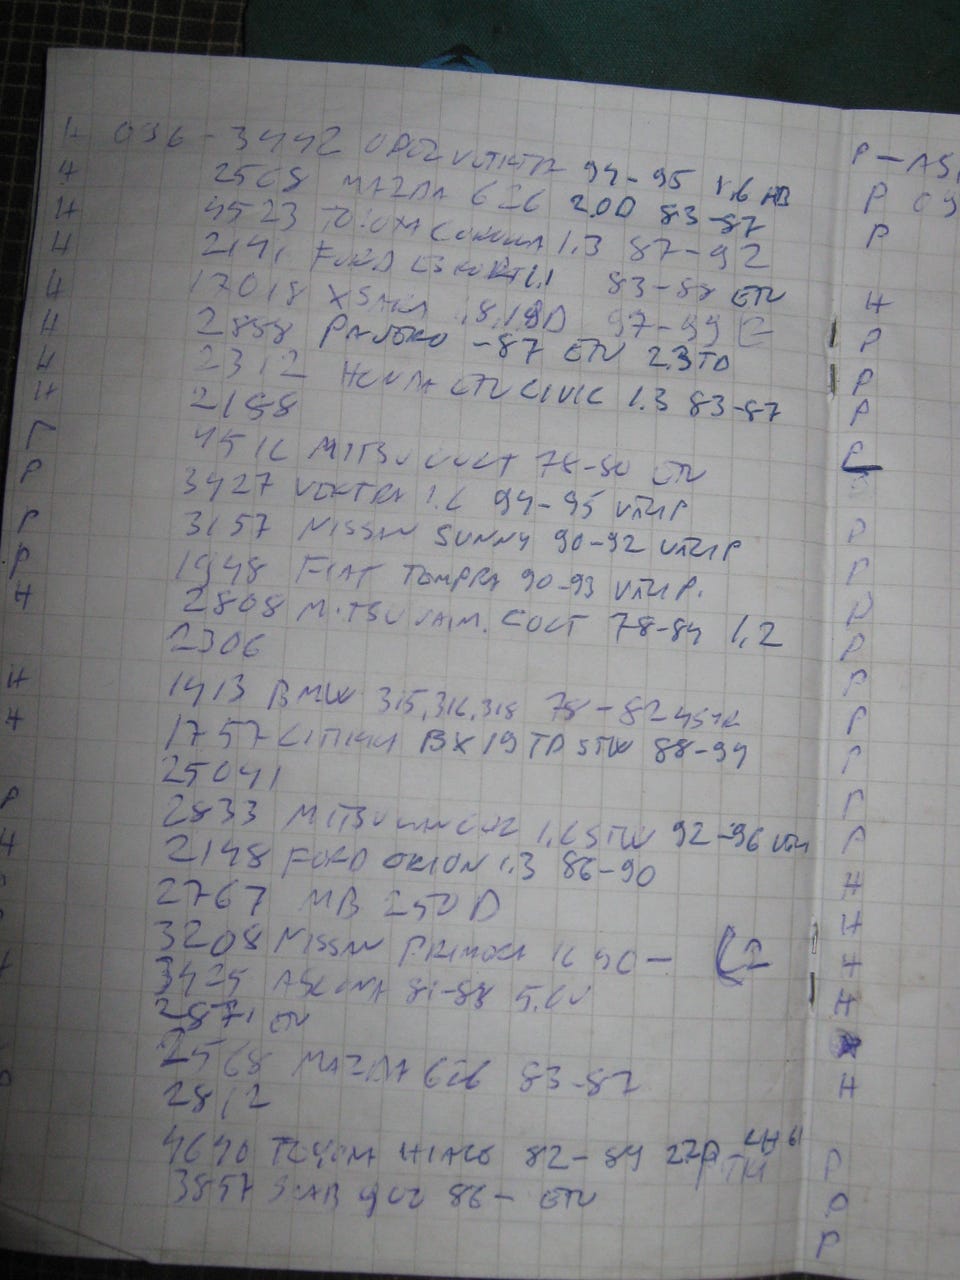 H 036-3442 OPEL VECTRA 94-95 1.6 HB
H 2568 MAZDA 626 2.0D 83-87
H 4523 TOYOTA COROLLA 1.3 87-92
H 2141 FORD ESKORT 1.1 83-88 ETU
H 17018 XSARA 1.8,1.9D 97-99
H 2888 PAJERO -87 ETU 2.3TD
H 2312 HONDA ETU CIVIC 1.3 83-87
H 2198
4516 MITSU COLT 78-80 ETU
P 3427 VEKTRA 1.6 94-95
P 3157 NISSAN SUNNY 90-92
P 1948 FIAT TEMPRA 90-93
H 2808 MITSU COLT 78-84 1,2
2306
H 1413 BMW 315,316,318 78-82
H 1757 BX19TD STW 88-94
25041
P 2833 MITSU LANCER 1.6 STW 92-96
H 2148 FORD ORION 1.3 86-90
2767 MB 250D
3208 NISSAN PRIMERA 16 90-
3425 ASCONA 81-88
2871 ETU
2568 MAZDA 626 83-87
2812
4640 TOYOTA HIACE 82-84
3857 SAAB 900 86- ETU
P-AS
P 09
P
H
P
P
P
P
P
P
P
P
P
P
P
P
P
H
H
H
H
H
P
P
P